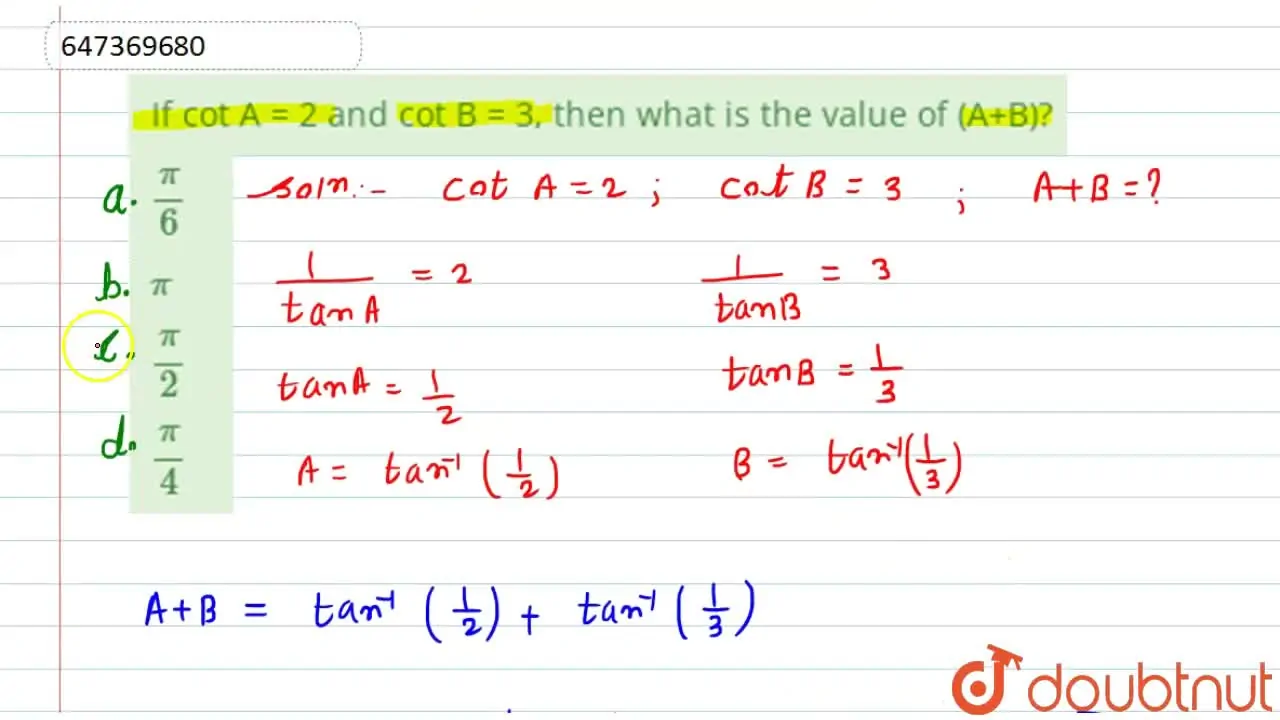 647369680
If cot A = 2 and cot B = 3, then what is the value of (A+B)?
a. π/6
Soln:- cot A = 2 ; cot B = 3 ; A+B = ?
b. π
1/tan A = 2 1/tan B = 3
c. π/2
tan A = 1/2 tan B = 1/3
d. π/4
A = tan⁻¹ (1/2) B = tan⁻¹ (1/3)
A+B = tan⁻¹ (1/2) + tan⁻¹ (1/3)
doubtnut